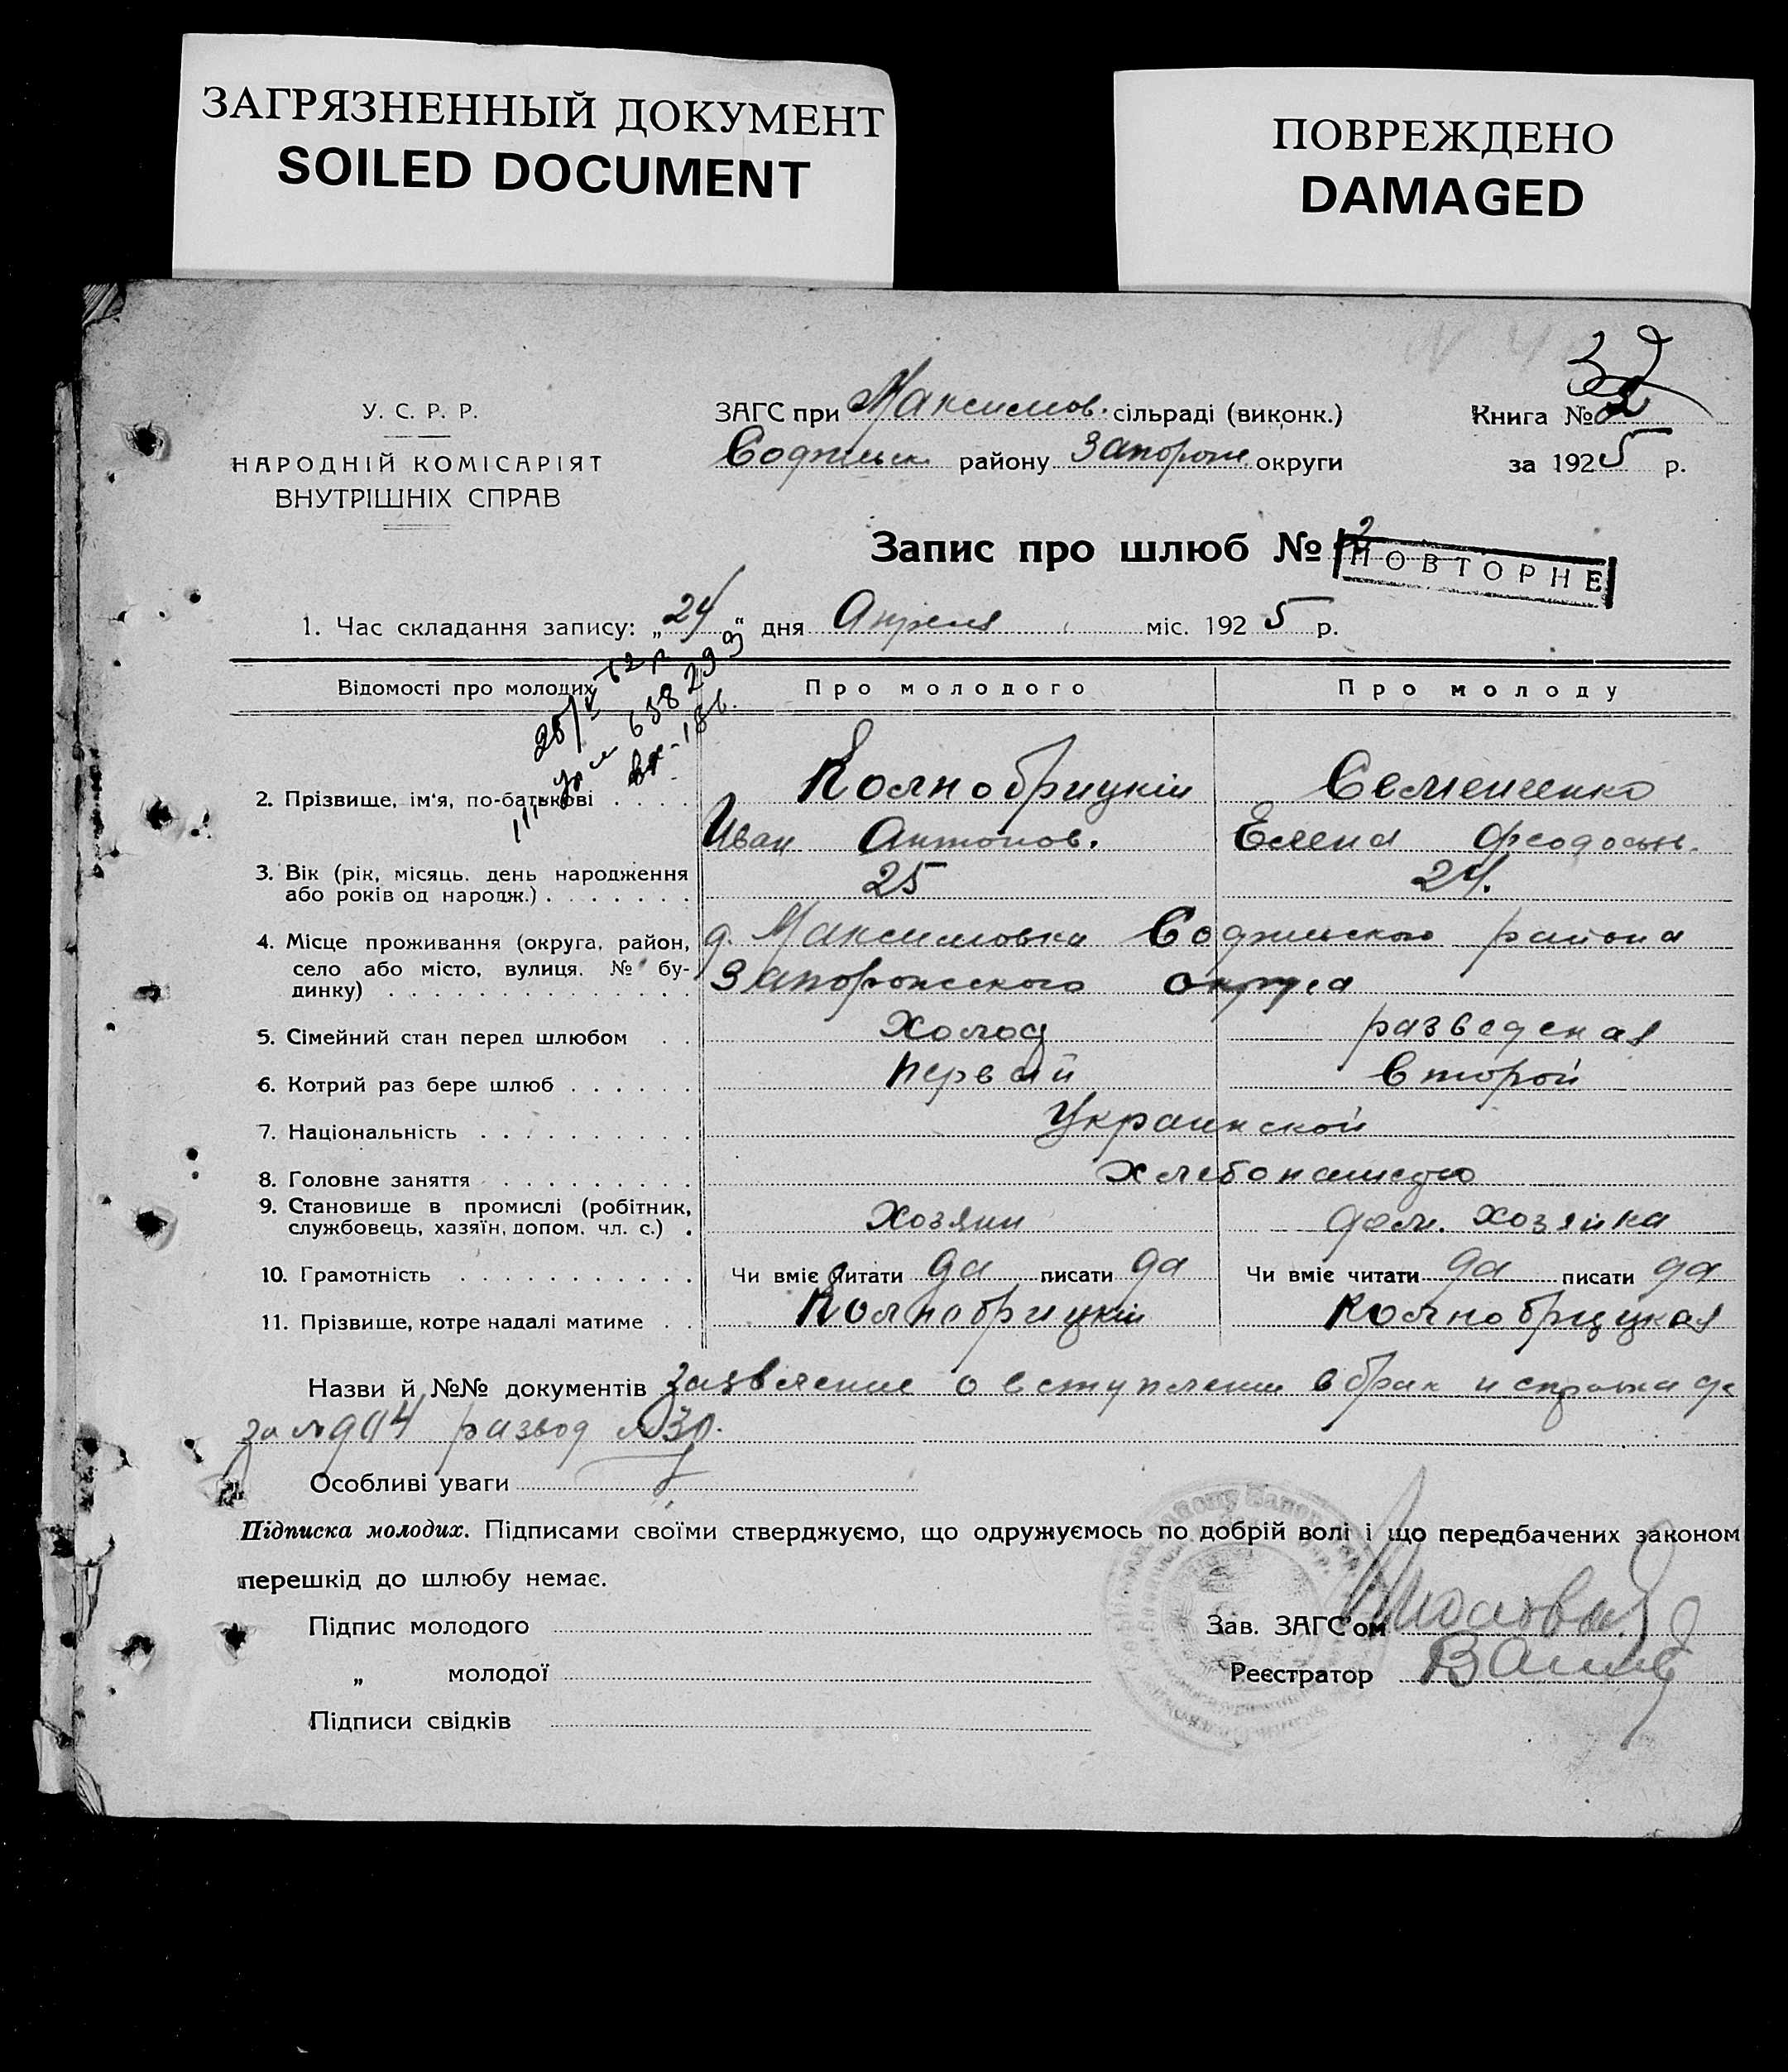 ЗАГРЯЗНЕННЫЙ ДОКУМЕНТ
SOILED DOCUMENT
ПОВРЕЖДЕНО
DAMAGED
У. С. Р. Р.
НАРОДНІЙ КОМІСАРІЯТ
ВНУТРІШНІХ СПРАВ
ЗАГС при Максимов. сільраді (виконк.)
району Запорож округи
32
Книга №
за 1925 р.
Запис про шлюб № 2
ПОВТОРНЕ
1. Час складання запису: „24“ дня Апреля міс. 1925 р.
Відомості про молодих
Про молодого
Про молоду
2. Прізвище, ім'я, по-батькові
Колнобрицкий Семененко
Иван Антонов. Елена Феодосьев.
3. Вік (рік, місяць. день народження
або років од народж.) 25 24.
4. Місце проживання (округа, район,
село або місто, вулиця. № будинку)
д. Максимовка района
Запорожского округа
5. Сімейний стан перед шлюбом Холост разведеная
6. Котрий раз бере шлюб первый второй
7. Національність Украинской
8. Головне заняття хлебопашество
9. Становище в промислі (робітник,
службовець, хазяїн, допом. чл. с.) Хозяин дом. хозяйка
10. Грамотність Чи вміє читати да писати да Чи вміє читати да писати да
11. Прізвище, котре надалі матиме Колнобрицкий Колнобрицкая
Назви й №№ документів заявление о вступлении в брак и справка
за № 914 развод № 30.
Особливі уваги
Підписка молодих. Підписами своїми стверджуємо, що одружуємось по добрій волі і що передбачених законом
перешкід до шлюбу немає.
Підпис молодого
Зав. ЗАГС'ом
„ молодої
Реєстратор
Підписи свідків